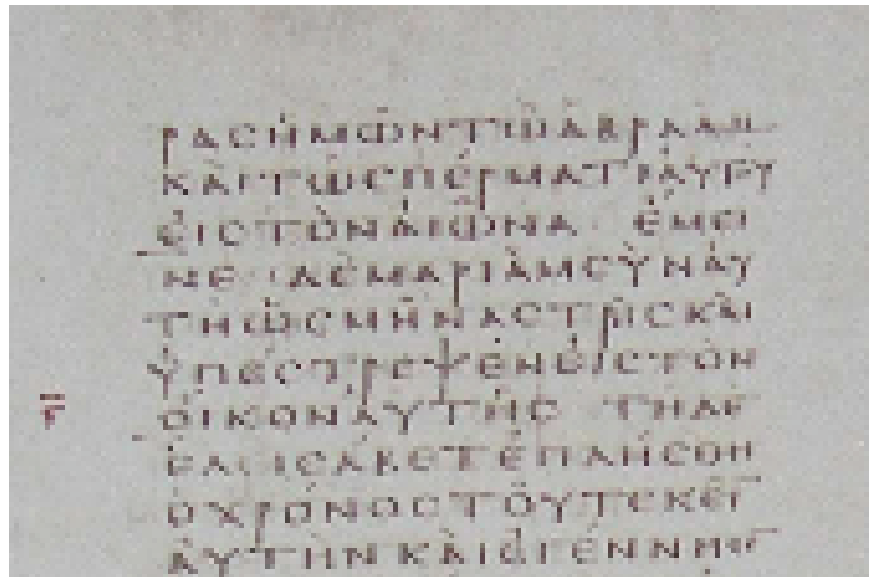 ΡΑCΗΜΩΝΤΩΑΒΡΑΑΜ
ΚΑΙΤΩCΠΕΡΜΑΤΙΑΥΤΥ
ΕΙCΤΟΝΑΙΩΝΑ ΕΜΕΙ
ΝΕ ΔΕΜΑΡΙΑΜCΥΝΑΥ
ΤΗΩCΜΗΝΑCΤΡΙCΚΑΙ
ΥΠΕCΤΡΕΨΕΝΕΙCΤΟΝ
Γ ΟΙΚΟΝΑΥΤΗC ΤΗΔΕ
ΕΛΙCΑΒΕΤΕΠΛΗCΘΗ
ΟΧΡΟΝΟCΤΟΥΤΕΚΕΙ
ΑΥΤΗΝΚΑΙΕΓΕΝΝΗC